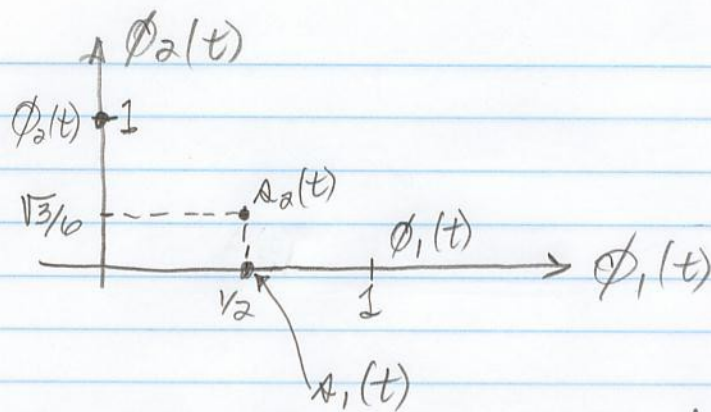 ϕ₂(t)
ϕ₂(t) 1
√3/6
s₂(t)
ϕ₁(t)
ϕ₁(t)
1/2
1
s₁(t)